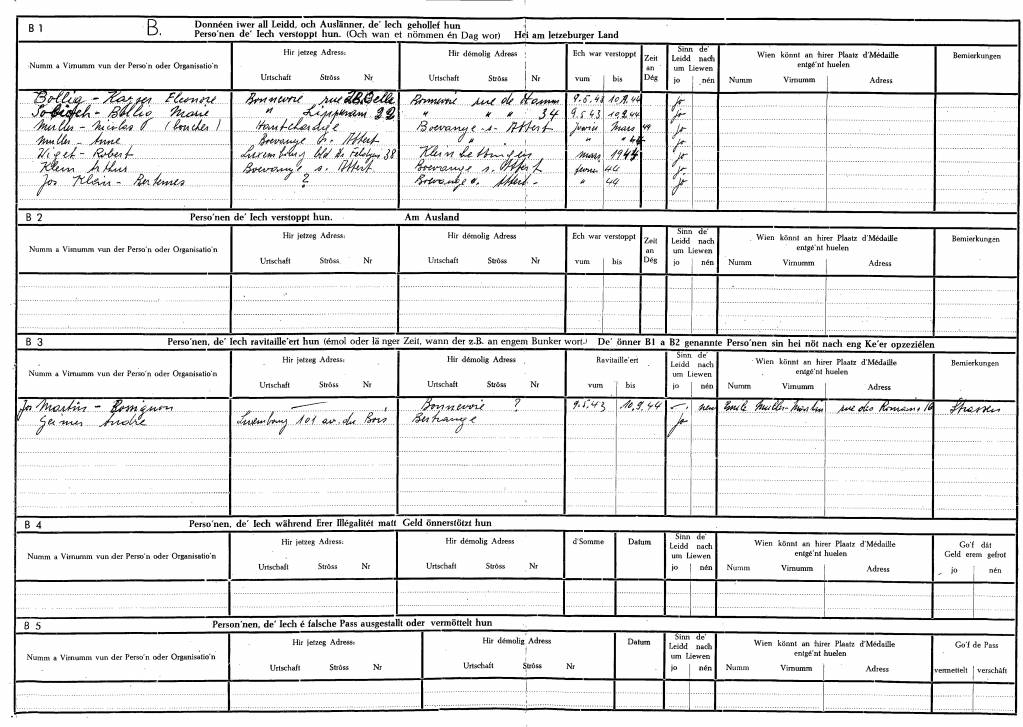 B 1 B. Donnéen iwer all Leidd, och Auslänner, de' Iech gehollef hun
Perso'nen de' Iech verstoppt hun. (Och wan et nömmen én Dag wor) Hei am letzeburger Land
Numm a Virnumm vun der Perso'n oder Organisatio'n Hir jetzeg Adress: Hir démolig Adress Ech war verstoppt Zeit an Dég Sinn de' Leidd nach um Liewen Wien könnt an hirer Plaatz d'Médaille entgé'nt huelen Bemierkungen
Urtschaft Ströss Nr Urtschaft Ströss Nr vum bis jo nén Numm Virnumm Adress
Bollig - Kayser Eleonore Bonnevoie rue Bonnevoie rue de Hamm 9.5.43 10.9.44 jo
Bollig Marie " Lippmann 22 " " " 34 9.5.43 10.9.44 jo
Muller - Nicolas (boucher) Hautcharage Boevange s. Attert Mars 44 jo
Muller - Anne Boevange s. Attert " " 44 jo
Robert Luxembourg bld 38 Klein mars 1944 jo
Klein Arthur Boevange s. Attert Boevange s. Attert 44 jo
Jos Klein - Bertemes ? Boevange s. Attert - " 44 jo
B 2 Perso'nen de' Iech verstoppt hun. Am Ausland
Numm a Virnumm vun der Perso'n oder Organisatio'n Hir jetzeg Adress: Hir démolig Adress Ech war verstoppt Zeit an Dég Sinn de' Leidd nach um Liewen Wien könnt an hirer Plaatz d'Médaille entgé'nt huelen Bemierkungen
Urtschaft Ströss Nr Urtschaft Ströss Nr vum bis jo nén Numm Virnumm Adress
B 3 Perso'nen, de' Iech ravitaille'ert hun (émol oder lä nger Zeit, wann der z.B. an engem Bunker wort.) De' önner B1 a B2 genannte Perso'nen sin hei nöt nach eng Ke'er opzeziélen
Numm a Virnumm vun der Perso'n oder Organisatio'n Hir jetzeg Adress: Hir démolig Adress Ravitaille'ert Sinn de' Leidd nach um Liewen Wien könnt an hirer Plaatz d'Médaille entgé'nt huelen Bemierkungen
Urtschaft Ströss Nr Urtschaft Ströss Nr vum bis jo nén Numm Virnumm Adress
Jos Martin - Romignon — Bonnevoie ? 9.5.43 10.9.44 — nen Emile Muller-Martin rue des Romains 16 Strassen
André Luxembourg 101 av. du Bois Bertrange jo
B 4 Perso'nen, de' Iech während Erer Illégalitét matt Geld önnerstötzt hun
Numm a Virnumm vun der Perso'n oder Organisatio'n Hir jetzeg Adress: Hir démolig Adress d'Somme Datum Sinn de' Leidd nach um Liewen Wien könnt an hirer Plaatz d'Médaille entgé'nt huelen Go'f dát Geld erem gefrot
Urtschaft Ströss Nr Urtschaft Ströss Nr jo nén Numm Virnumm Adress jo nén
B 5 Person'nen, de' Iech é falsche Pass ausgestallt oder vermöttelt hun
Numm a Virnumm vun der Perso'n oder Organisatio'n Hir jetzeg Adress: Hir démolig Adress Datum Sinn de' Leidd nach um Liewen Wien könnt an hirer Plaatz d'Médaille entgé'nt huelen Go'f de Pass
Urtschaft Ströss Nr Urtschaft Ströss Nr jo nén Numm Virnumm Adress vermettelt verschäft